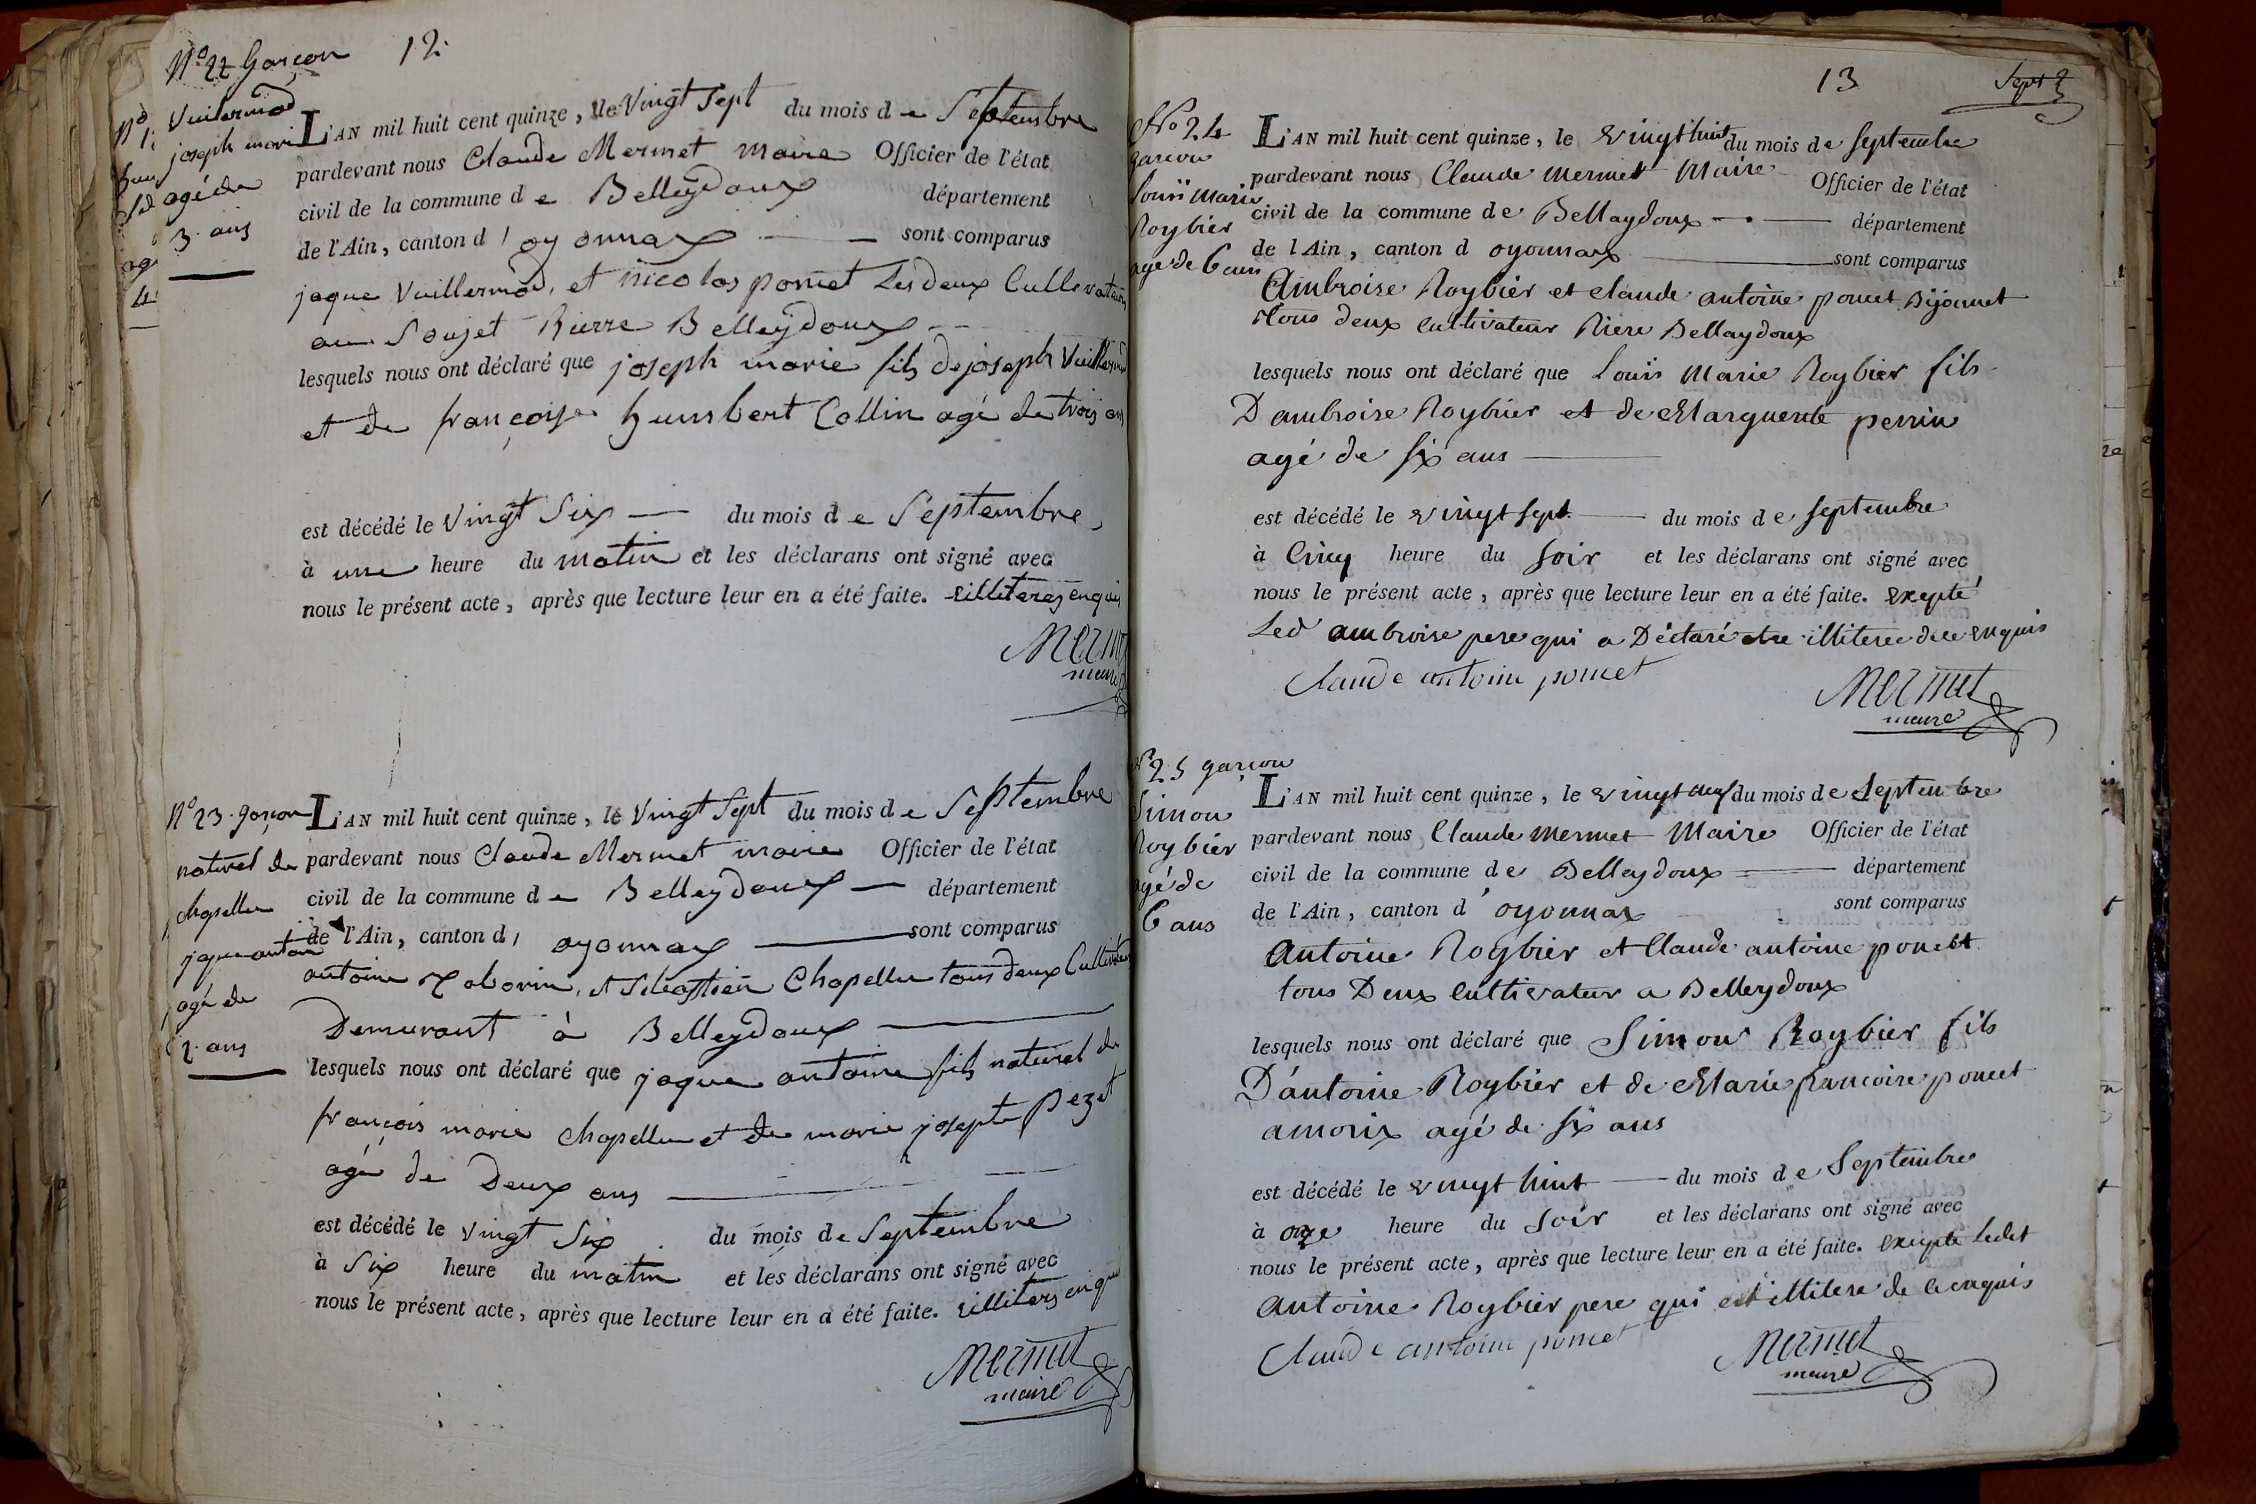 12.
N.o 22 Garçon
Vuillermod
joseph marie
agé de
3. ans
L'AN mil huit cent quinze, le Vingt Sept du mois de Septembre
pardevant nous Claude Mermet Maire Officier de l'état
civil de la commune de Belleydoux département
de l'Ain, canton d'oyonnax sont comparus
jaque Vuillermod, et nicolas poncet Les deux Cullevateurs
au Soujet Rierre Belleÿdoux
lesquels nous ont déclaré que joseph marie fils de joseph Vuillermod
et de françoise humbert Collin agé de trois ans
est décédé le Vingt Six du mois de Septembre,
à une heure du matin et les déclarans ont signé avec
nous le présent acte, après que lecture leur en a été faite. illiteres enquis
Mermet
maire
N.o 23. garçon
naturel de
chapellu
jaque antoine
agé de
2. ans
L'AN mil huit cent quinze, le Vingt Sept du mois de Septembre
pardevant nous Claude Mermet maire Officier de l'état
civil de la commune de Belleydoux département
de l'Ain, canton d' oyonnax sont comparus
antoine Taborin, et Sebastien Chapellu tous deux Cultivateurs
Demurant à Belleydoux
lesquels nous ont déclaré que jaque antoine fils naturel de
françois marie chapellu et de marie josepte Pezet
agé de Deux ans
est décédé le vingt Six du mois de Septembre
à Six heure du matin et les déclarans ont signé avec
nous le présent acte, après que lecture leur en a été faite. illiters enquis
Mermet
maire
13
Sept
No 24
garcon
Louis Marie
Roybier
agé de 6 ans
L'AN mil huit cent quinze, le vingt huit du mois de septembre
pardevant nous Claude Mermet Maire Officier de l'état
civil de la commune de Bellaydoux département
de l'Ain, canton d oyonnax sont comparus
Ambroise Roybier et claude antoine poncet Bijonnet
tous deux cultivateur Riere Bellaydoux
lesquels nous ont déclaré que Louis Marie Roybier fils
D'ambroise Roybier et de Marguerite perrin
agé de six ans
est décédé le vingt sept du mois de septembre
à Cinq heure du soir et les déclarans ont signé avec
nous le présent acte, après que lecture leur en a été faite. exepté
Led ambroise pere qui a Déclaré etre illiteree de ce enquis
Claude antoine poncet
Mermet
maire
No 25 garçon
Simon
Roybier
agé de
6 ans
L'AN mil huit cent quinze, le vingt neuf du mois de septembre
pardevant nous Claude Mermet Maire Officier de l'état
civil de la commune de Belleydoux département
de l'Ain, canton d' oyonnax sont comparus
Antoine Roybier et Claude antoine poncet
tous Deux cultivateur a Belleydoux
lesquels nous ont déclaré que Simon Roybier fils
D'antoine Roybier et de Marie francoise poncet
amorix agé de six ans
est décédé le vingt huit du mois de Septembre
à onze heure du soir et les déclarans ont signé avec
nous le présent acte, après que lecture leur en a été faite. exepte Ledit
Antoine Roybier pere qui est illitere de ce enquis
Claude antoine poncet
Mermet
maire